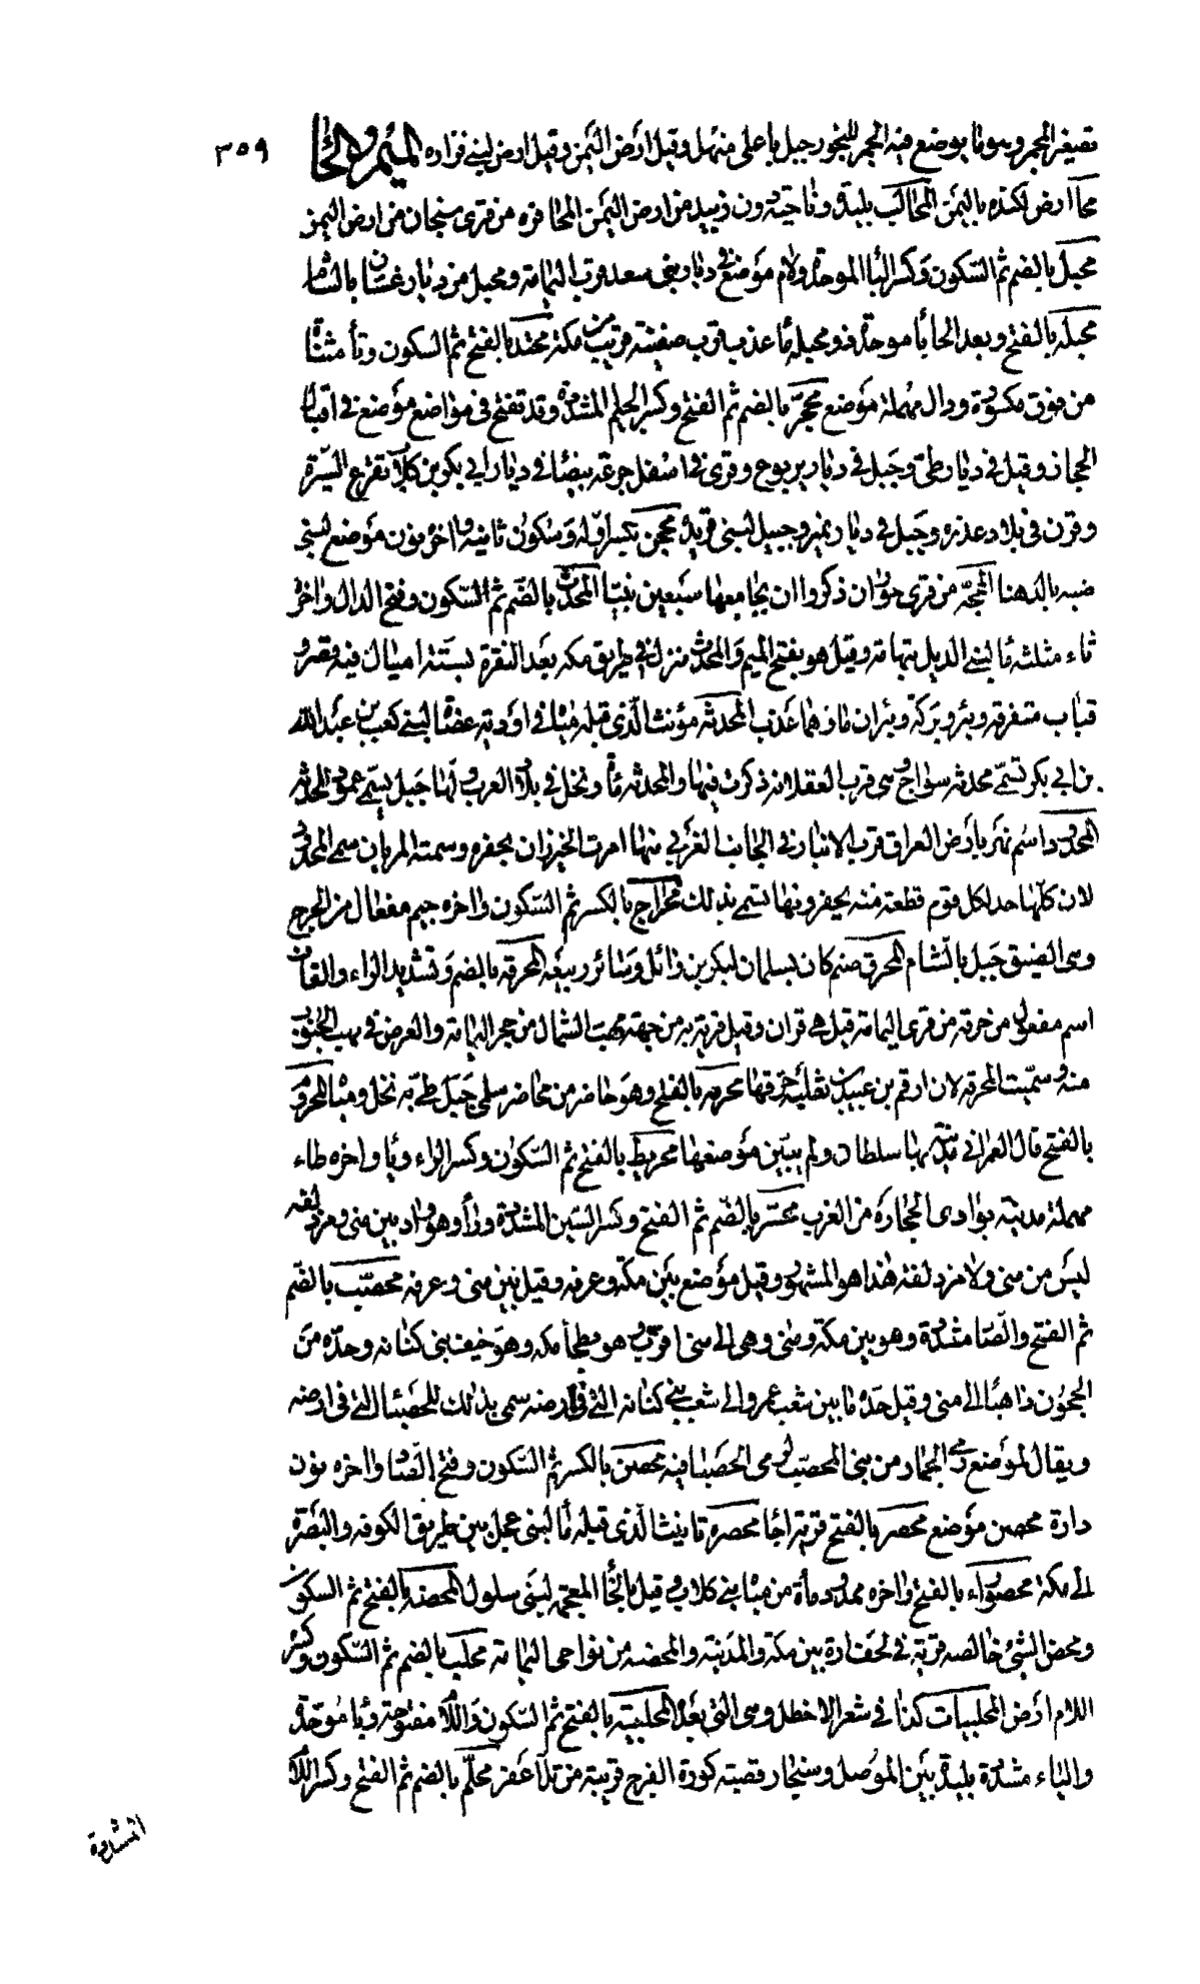 تصغير المجمر وهو ما يوضع فيه الجمر للبخور جبل باعلى منهل وقيل ارض اليمن وقيل ارض لبنى فزاره الميم والحا
٣٥٩
محا ارض لكنده باليمن المحالب بليدة وناحية دون زبيد من ارض اليمن المحاقره من قرى سنحان من ارض اليمن
محبل بالضم ثم السكون وكسر البا الموحدة ولام موضع فى ديار بنى سعد قرب اليمامة ومحبل من ديار غسان بالشام
محبله بالفتح وبعد الحا با موحدة ذو محبله ما عذب قرب صفينة قريب من مكة محتد بالفتح ثم السكون وتا مثناة
من فوق مكسورة ودال مهملة موضع محجر بالضم ثم الفتح وكسر الجيم المشددة وقد تفتح فى مواضع موضع فى اقبال
الحجاز وقيل فى ديار طى وجبل فى ديار يربوع وقرى فى اسفل جرعه بيضا فى ديار ابى بكر بن كلاب تفرع السرة
وقرن فى بلاد عذره وجبل فى ديار نمير وجبيل لبنى محجن بكسر اوله وسكون ثانيه واخره نون موضع لبنى
ضبه بالدهنا المحجه من قرى حوران ذكروا ان بجامعها سبعين نبيا المحدث بالضم ثم السكون وفتح الدال واخره
ثاء مثلثه ما لبنى الديل بتهامة وقيل هو بفتح الميم والمحدث منزل فى طريق مكه بعد النقرة لستة اميال فيه قصر و
قباب متفرقه وبئر وبركة وبئران ماؤهما عذب المحدثه مؤنث الذى قبله ما فى اودية عضاه لبنى كعب بن عبد الله
بن ابى بكر تسمى محدثه سواج وهى قرب العقلانه ذكرت فيها والمحدثه ماة ونخل فى بلاد العرب ولها جبل يسمى عمود المحدثه
المحدود اسم نهر بارض العراق قرب الانبار فى الجانب الغربى منها امرت الخيزران بحفره وسمته المريان سمى المحدود
لان كلها حد لكل قوم قطعة منه يحفرونها تسمى بذلك محراج بالكسر ثم السكون واخره جيم مفعال من الحرج
وهى الضيق جبل بالشام المحرق صنم كان بسلمان لبكر بن وائل وسائر ربيعه المحرقه بالضم وتشديد الراء والقاف
اسم مفعول من حرقه من قرى اليمامة قيل هى قران وقيل قرية به من جهة مهب الشمال من حجر اليمامة والعرض فى مهب الجنوب
منه وسميت المحرقه لان ارقم بن عبيد بن ثعلبة حرقها محرمه بالفتح وهو حاضر من محاضر سلمى جبل طى به نخل ومياه المحروس
بالفتح قال العمرانى بها سلطان ولم يبين موضعها محريط بالفتح ثم السكون وكسر الراء ويا واخره طاء
مهملة مدينة بوادى الحجارة من الغرب محسر بالضم ثم الفتح وكسر السين المشددة ورا وهو واد بين منى ومزدلفه
ليس من منى ولا مزدلفة هذا هو المشهور وقيل موضع بين مكة وعرفه وقيل بين منى وعرفه محصب بالضم
ثم الفتح والصا مشددة وهو بين مكة ومنى وهى الى منى اقرب وهو بطحا مكه وهو خيف بنى كنانه وحده من
الحجون ذاهبا الى منى وقيل حده ما بين شعب عمرو الى شعب بنى كنانه التى فى ارضه سمى بذلك للحصباء التى فى ارضه
ويقال لموضع رمى الجمار من منى المحصب لرمى الحصبا فيه محصن بالكسر ثم السكون وفتح الصاد واخره نون
دارة محصن موضع محصر بالفتح قرية اجا محصره تانيث الذى قبله ما لبنى عجل بين طريق الكوفه والبصرة
الى مكة محصوراء بالفتح واخره ممدود ماة من مياه بنى كلاب وقيل بالخا المعجمه لبنى سلول المحضه بالفتح ثم السكون
ومحض الشئ خالصه قرية فى لحف ارة بين مكة والمدينة والمحضه من نواحى اليمامة محلب بالضم ثم السكون وكسر
اللام ارض المحلبيات كذا فى شعر الاخطل وهى التى بعد المحلبية بالفتح ثم السكون واللام مفتوحة وبا موحدة
والياء مشددة بليدة بين الموصل وسنجار وقصبته كورة الفرج قريبة من تلاعفر محلم بالضم ثم الفتح وكسر اللام
المشددة